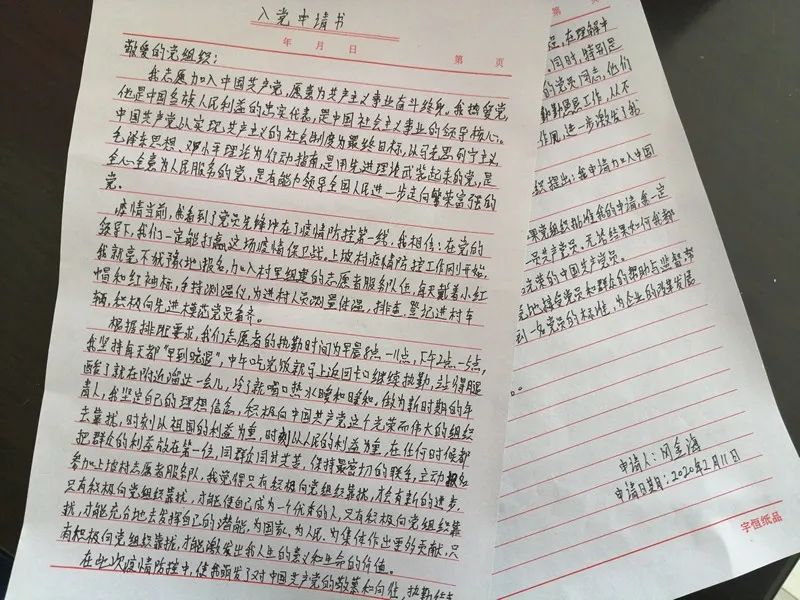 入党申请书
年 月 日
第 页
敬爱的党组织：
我志愿加入中国共产党，愿意为共产主义事业奋斗终身。我热爱党，
他是中国各族人民利益的忠实代表，是中国社会主义事业的领导核心。
中国共产党以实现共产主义的社会制度为最终目标，以马克思列宁主义、
毛泽东思想、邓小平理论为行动指南，是用先进理论武装起来的党，是
全心全意为人民服务的党，是有能力领导全国人民进一步走向繁荣富强的
党。
疫情当前，我看到了党员先锋冲在了疫情防控第一线，我相信：在党的
领导下，我们一定能打赢这场疫情保卫战。上坡村疫情防控工作刚开始，
我就毫不犹豫地报名，加入村里组建的志愿者服务队伍，每天戴着小红
帽和红袖标，手持测温仪，为进村人员测量体温，排查、登记进村车
辆，积极向先进模范党员看齐。
根据排班要求，我们志愿者的执勤时间为早晨8点-11点，下午2点-6点，
我坚持每天都“早到晚退”，中午吃完饭就马上返回卡口继续执勤，站得腿
酸了就在附近溜达一会儿，冷了就喝口热水暖和暖和。做为新时期的年
青人，我坚定自己的理想信念，积极向中国共产党这个光荣而伟大的组织
去靠拢，时刻以祖国的利益为重，时刻以人民的利益为重，在任何时候都
把群众的利益放在第一位，同群众同甘共苦，保持最密切的联系，主动
参加上坡村志愿者服务队，我觉得只有积极向党组织靠拢，才会有新的进步，
只有积极向党组织靠拢，才能使自己成为一个优秀的人，只有积极向党组织靠
拢，才能充分地去发挥自己的潜能，为国家、为人民、为集体作出更的贡献，只
有积极向党组织靠拢，才能激发出我人生的意义和生命的价值。
在此次疫情防控中，使我萌发了对中国共产党的敬慕和向往，执勤
在理解中
同时，特别是
的党员同志，他们
勤勤恳恳工作，从不
作风，进一步激发了我
织提出：我申请加入中国
果党组织批准我的申请，我一定
员共产党员。无论结果如何我都
光荣的中国共产党员。
地接受党员和群众的帮助与监督，帮
到一名党员的标准，为企业的改革发展
申请人：闪金海
申请日期：2020年2月11日
宇恒纸品